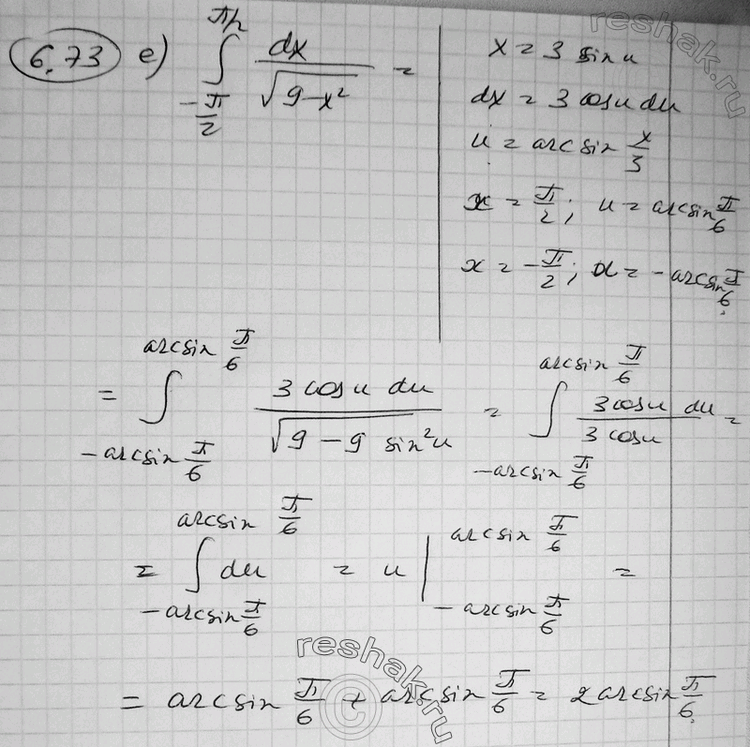 6.73 е) ∫_{-π/2}^{π/2} dx / √(9-x²) =
x = 3 sin u
dx = 3 cos u du
u = arcsin x/3
x = π/2; u = arcsin π/6
x = -π/2; u = -arcsin π/6
= ∫_{-arcsin π/6}^{arcsin π/6} 3 cos u du / √(9 - 9 sin² u) = ∫_{-arcsin π/6}^{arcsin π/6} 3 cos u du / 3 cos u =
= ∫_{-arcsin π/6}^{arcsin π/6} du = u |_{-arcsin π/6}^{arcsin π/6} =
= arcsin π/6 + arcsin π/6 = 2 arcsin π/6
reshak.ru
reshak.ru
©